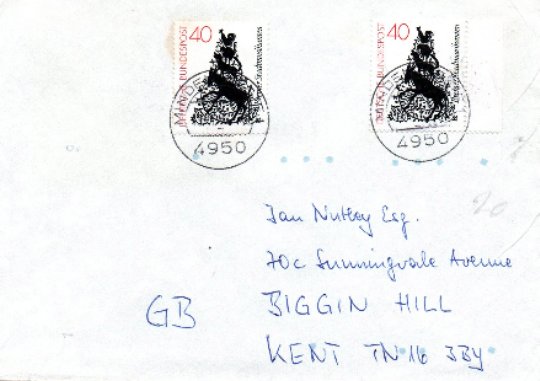 40
40
DEUTSCHE BUNDESPOST
BUNDESPOST
Die Bremer Stadtmusikanten
MINDEN
4950
4950
Ian Nutley Esq.
70c Sunningvale Avenue
GB
BIGGIN HILL
KENT TN16 3BY
20